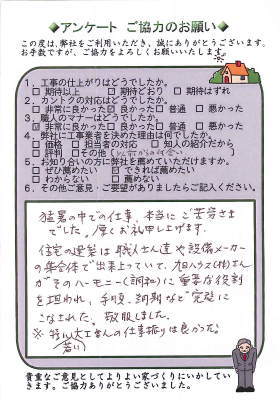 ◆アンケート ご協力のお願い◆
この度は、弊社をご利用いただき、誠にありがとうございます。
お手数ですが、ご協力をよろしくお願いいたします。
1. 工事の仕上がりはどうでしたか。
□ 期待以上 □ 期待どおり □ 期待はずれ
2. カントクの対応はどうでしたか。
□ 非常に良かった □ 良かった □ 普通 □ 悪かった
3. 職人のマナーはどうでしたか。
□ 非常に良かった □ 良かった □ 普通 □ 悪かった
4. 弊社に工事業者を決めた理由は何でしたか。
□ 価格 □ 担当者の対応 □ 知人の紹介だから
□ 評判 □ その他
5. お知り合いの方に弊社を薦めていただけますか。
□ ぜひ薦めたい □ できれば薦めたい
□ わからない □ 薦めない
6. その他ご意見・ご要望がありましたらご記入ください。
猛暑の中での仕事、本当にご苦労さま
でした。厚くお礼申し上げます。
住宅の建築は職人さん達や設備メーカー
の集合体で出来上っていて、
がそのハーモニー(調和)に重要な役割
を担われ、手際、調整など完璧に
こなされた。敬服しました。
※特に大工さんの仕事振りは良かった。
(若い)
貴重なご意見としてよりよい家づくりにいかしてい
きます。ご協力ありがとうございました。